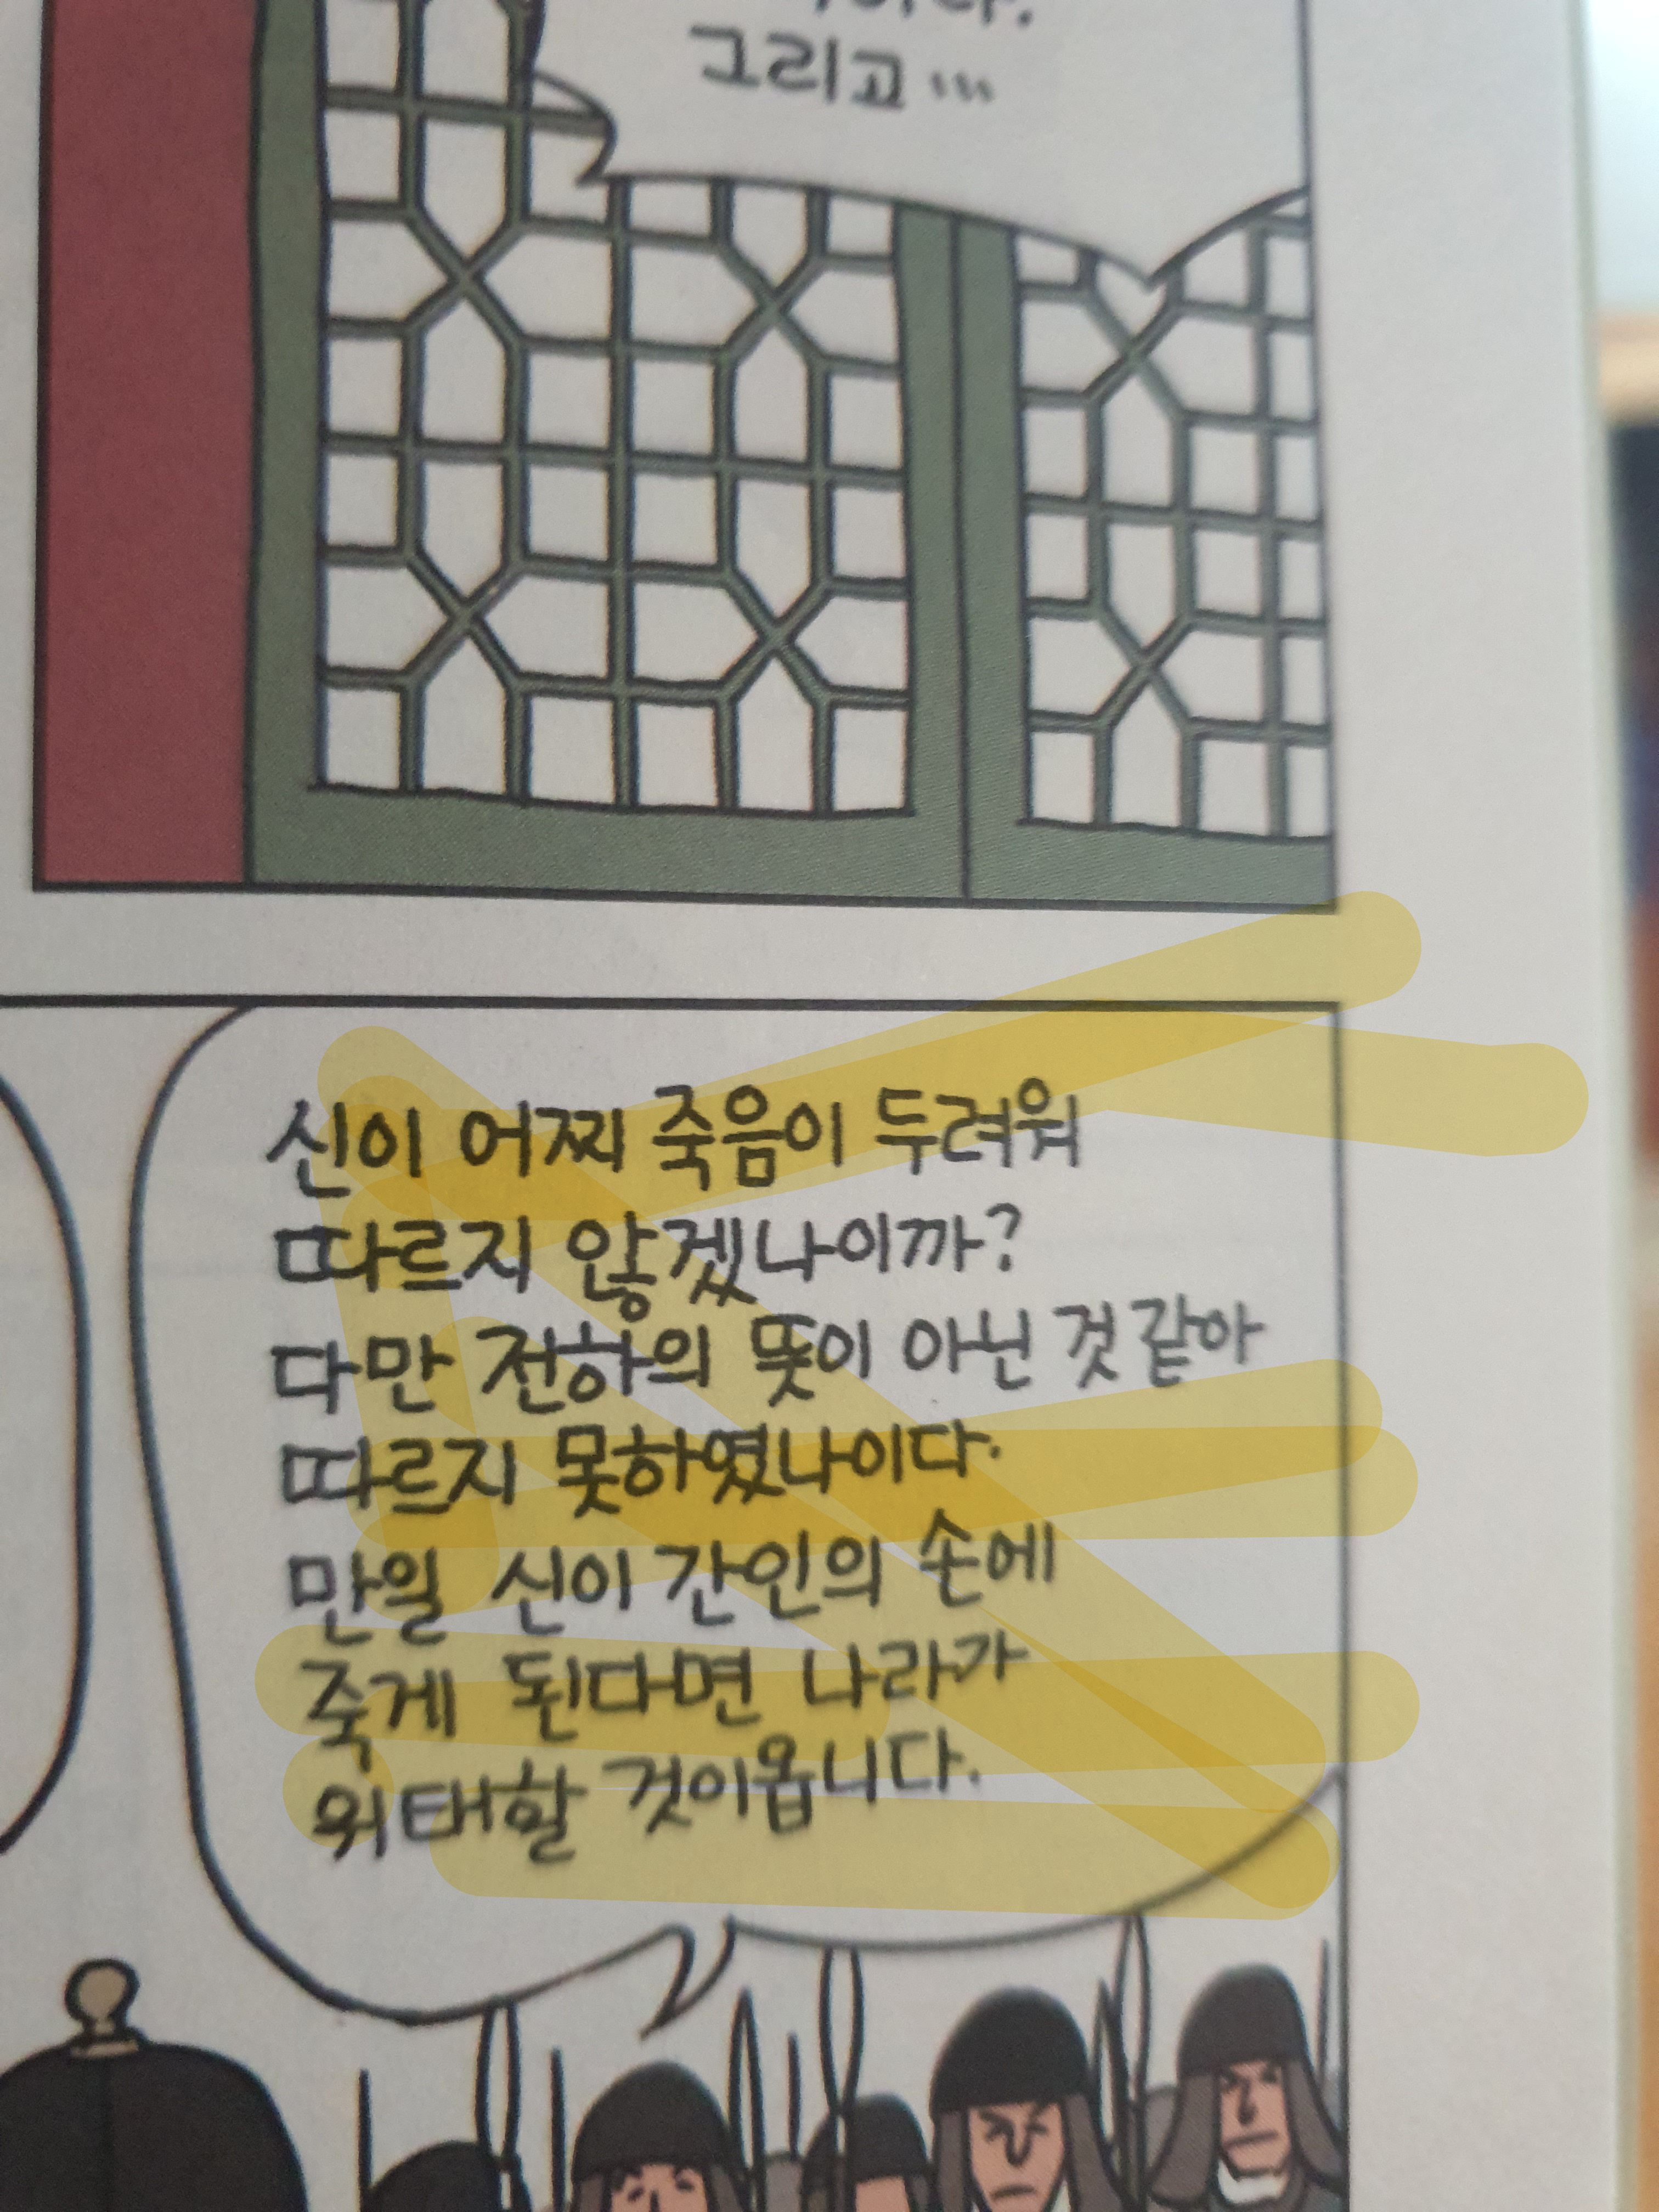 그리고…
신이 어찌 죽음이 두려워
따르지 않겠나이까?
다만 전하의 뜻이 아닌 것 같아
따르지 못하였나이다.
만일 신이 간인의 손에
죽게 된다면 나라가
위태할 것이옵니다.